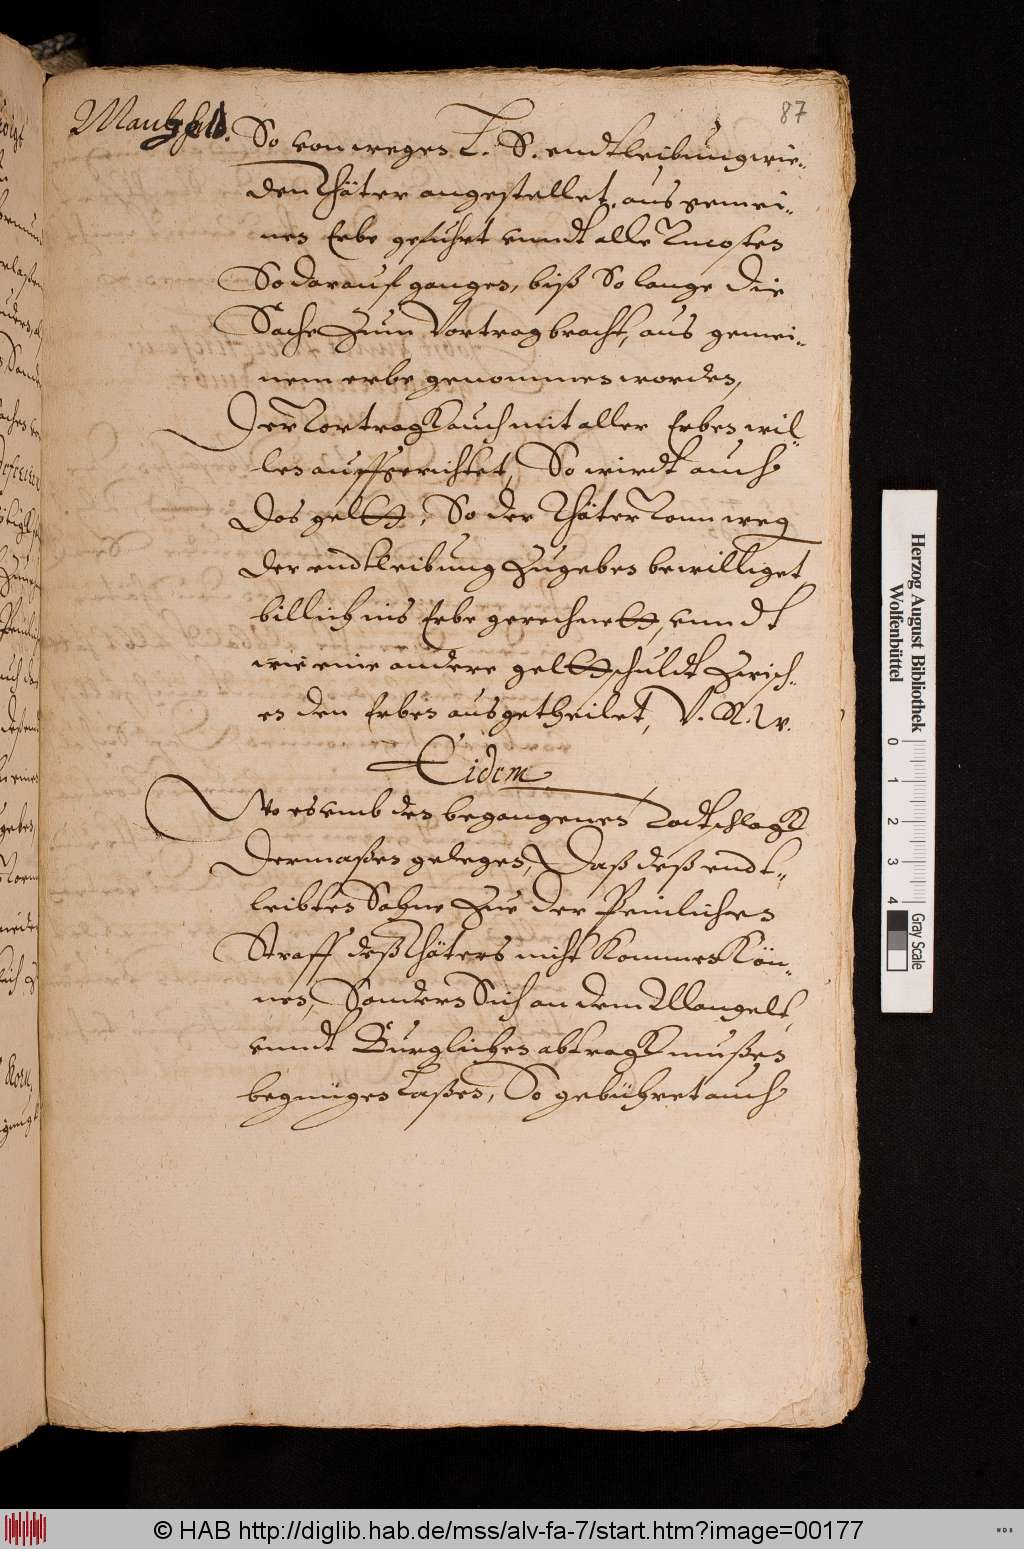 87
Mangeld.
So von wegen T. S. endtleibung wie-
den Thäter angestellet, aus gemei-
nen Erbe gefuhrt unndt alle Vncosten
So darauf gangen, biß So lange die
Sache zum Vortrag bracht, aus gemei-
nem erbe genommen worden,
Der Vortragk auch mit aller Erben wil-
len auffgerichtet, So wirdt auch
das geldt, So der Thäter vonn weg
der endtleibung zugeben bewilliget
billich ins Erbe gerechnett, unndt
wie eine andere geldtschuldt zwisch-
en den Erben ausgetheilet, V. R. W.
Eidem
Wo es umb den begangenen Todtschlagk
Dermaßen gelegen, Daß deß endt-
leibten Sohne zue der Peinlichen
Straff deß Thäters nicht kommen kön-
nen, Sondern Sich an dem Mangelt
unndt Burglichen abtragk mußen
begnügen laßen, So gebühret auch
Herzog August Bibliothek
Wolfenbüttel
0 1 2 3 4
Gray Scale
© HAB http://diglib.hab.de/mss/alv-fa-7/start.htm?image=00177